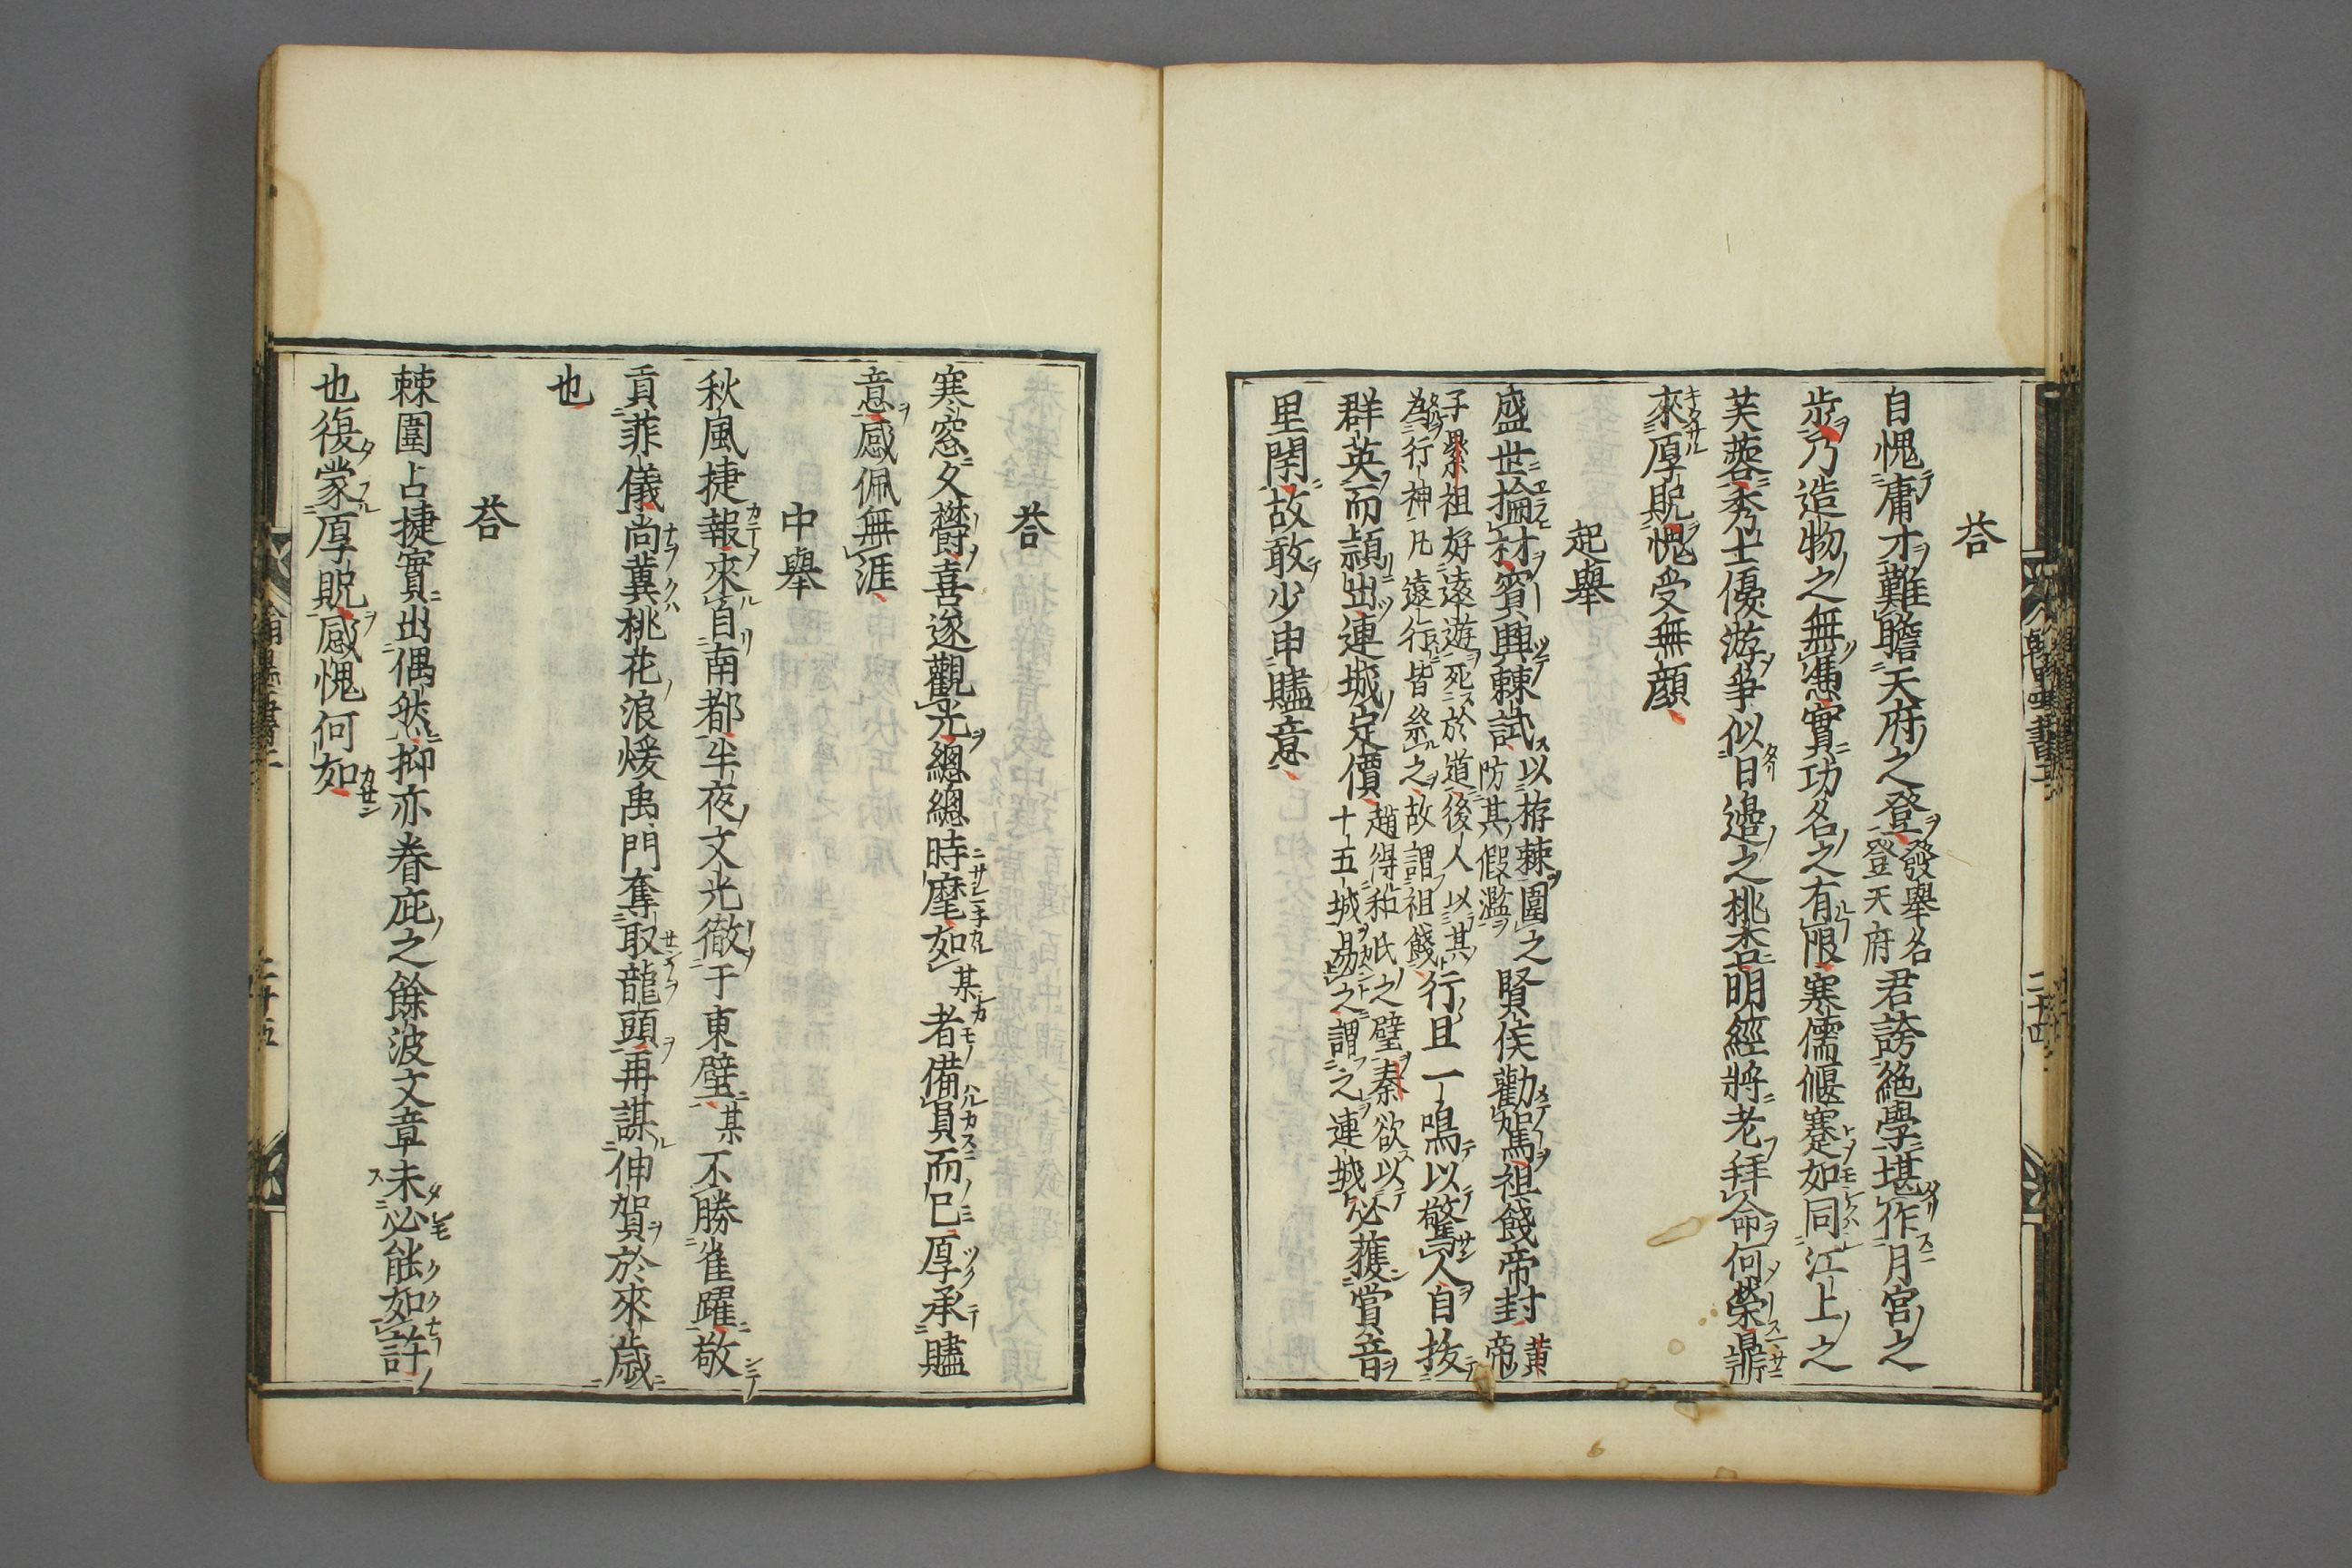 荅
自愧庸才難瞻天府之登發舉名登天府君誇絕學堪作月宮之
步乃造物之無憑實功名之有限寒儒偃蹇如同江上之
芙蓉秀士優游爭似日邊之桃杏明經將老拜命何榮鼎
來厚貺愧受無顔
起舉
盛世掄材賓興棘試以栫棘圍之防其假濫賢侯勸駕祖餞帝封黃帝
子纍祖好遠遊死於道後人以其為行神凡遠行皆祭之故謂祖餞行且一鳴以驚人自拔
群英而頴出連城定價趙得和氏之璧秦欲以十五城易之謂之連城必獲賞音
里閈故敢少申贐意
荅
寒窓久欝喜逐觀光總總時髦如某者備員而已厚承贐
意感佩無涯
中舉
秋風捷報來自南都半夜文光徹于東壁某不勝雀躍敬
貢菲儀尚冀桃花浪煖禹門奪取龍頭再謀伸賀於來歲
也
荅
棘圍占捷實出偶然抑亦眷庇之餘波文章未必能如許
也復蒙厚貺感愧何如
二十四
二十五